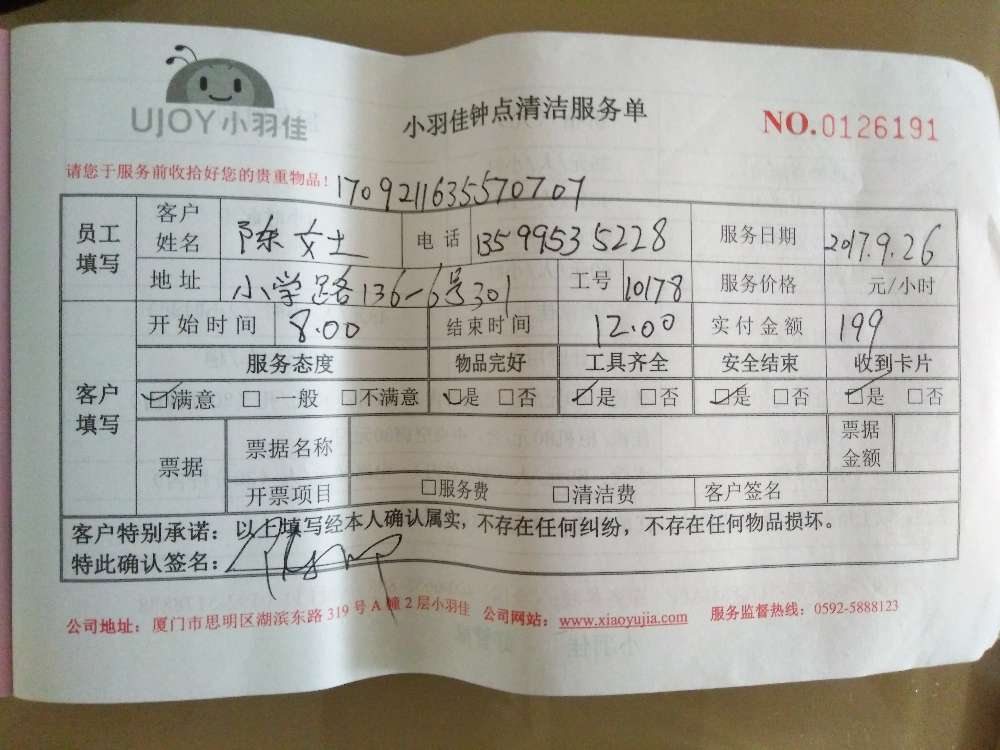 UJOY小羽佳
小羽佳钟点清洁服务单
NO.0126191
请您于服务前收拾好您的贵重物品!
1709211635570707
员工填写 客户姓名 陈女士 电话 13599535228 服务日期 2017.9.26
地址 小学路136-6号301 工号 10178 服务价格 元/小时
客户填写 开始时间 8.00 结束时间 12.00 实付金额 199
服务态度 物品完好 工具齐全 安全结束 收到卡片
☑满意 □一般 □不满意 ☑是 □否 ☑是 □否 ☑是 □否 ☑是 □否
票据 票据名称 票据金额
开票项目 □服务费 □清洁费 客户签名
客户特别承诺:以上填写经本人确认属实,不存在任何纠纷,不存在任何物品损坏。
特此确认签名:
公司地址:厦门市思明区湖滨东路319号A幢2层小羽佳 公司网站:www.xiaoyujia.com 服务监督热线:0592-5888123